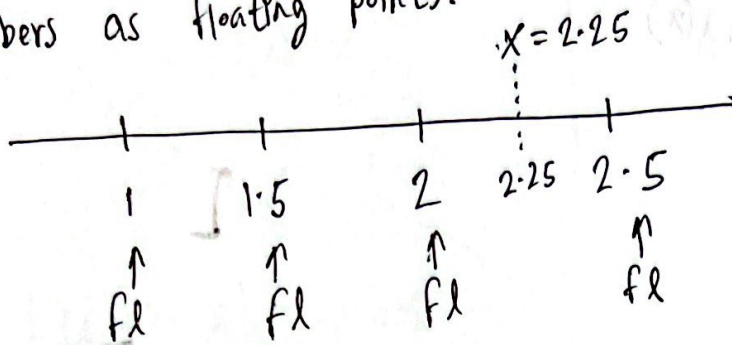 bers as floating points.
x = 2.25
1 1.5 2 2.25 2.5
↑ ↑ ↑ ↑
fl fl fl fl